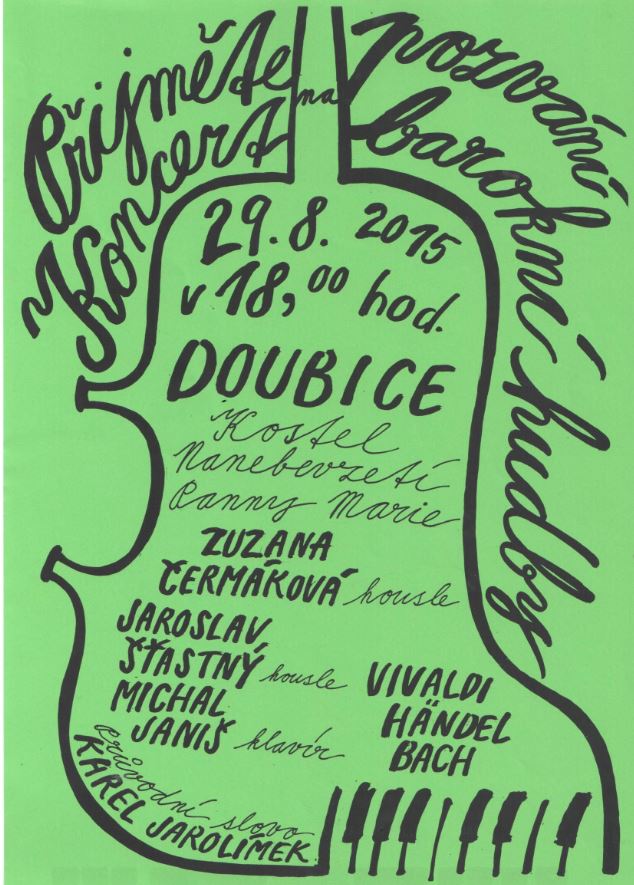 Přijměte na pozvání
Koncert barokní hudby
29. 8. 2015
v 18,00 hod.
DOUBICE
Kostel
Nanebevzetí
Panny Marie
ZUZANA
ČERMÁKOVÁ housle
JAROSLAV
ŠŤASTNÝ housle
MICHAL
JANIŠ klavír
VIVALDI
HÄNDEL
BACH
průvodní slovo
KAREL JAROLÍMEK